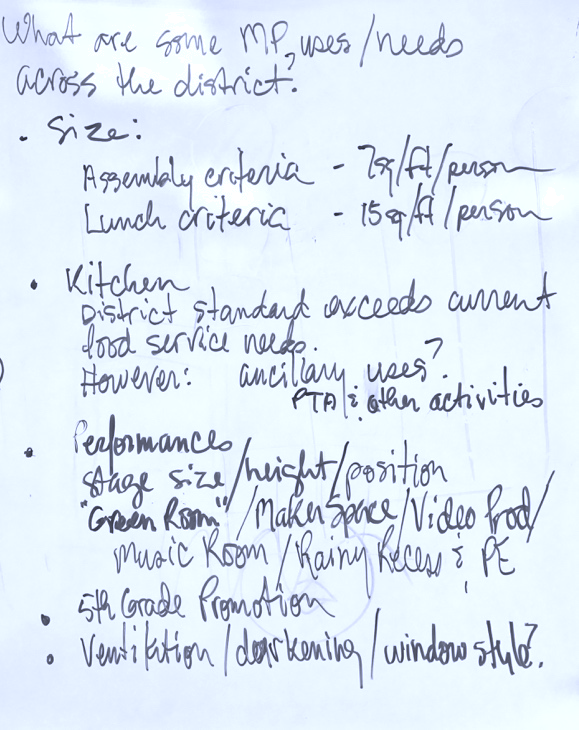 What are some MP, uses/needs
across the district?
• Size:
Assembly criteria - 7sq/ft/person
Lunch criteria - 15sq/ft/person
• Kitchen
District standard exceeds current
food service needs.
However: ancillary uses?
PTA & other activities
• Performances
Stage size/height/position
"Green Room"/MakerSpace/Video Prod/
Music Room/Rainy Recess & PE
• 5th Grade Promotion
• Ventilation/darkening/window style?